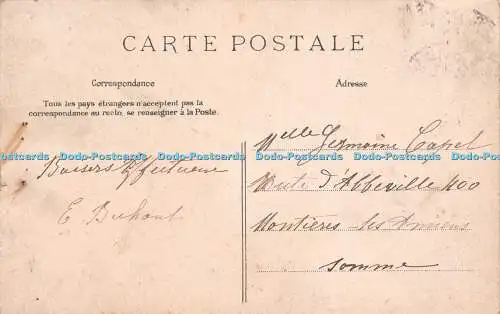 CARTE POSTALE
Correspondance
Tous les pays étrangers n'acceptent pas la
correspondance au recto, se renseigner à la Poste.
Baisers affectueux
E Duhont
Adresse
Melle Germaine Capel
Route d'Abbeville 400
Montières-les-Amiens
Somme
Dodo-Postcards Dodo-Postcards Dodo-Postcards Dodo-Postcards Dodo-Postcards Dodo-Postcards